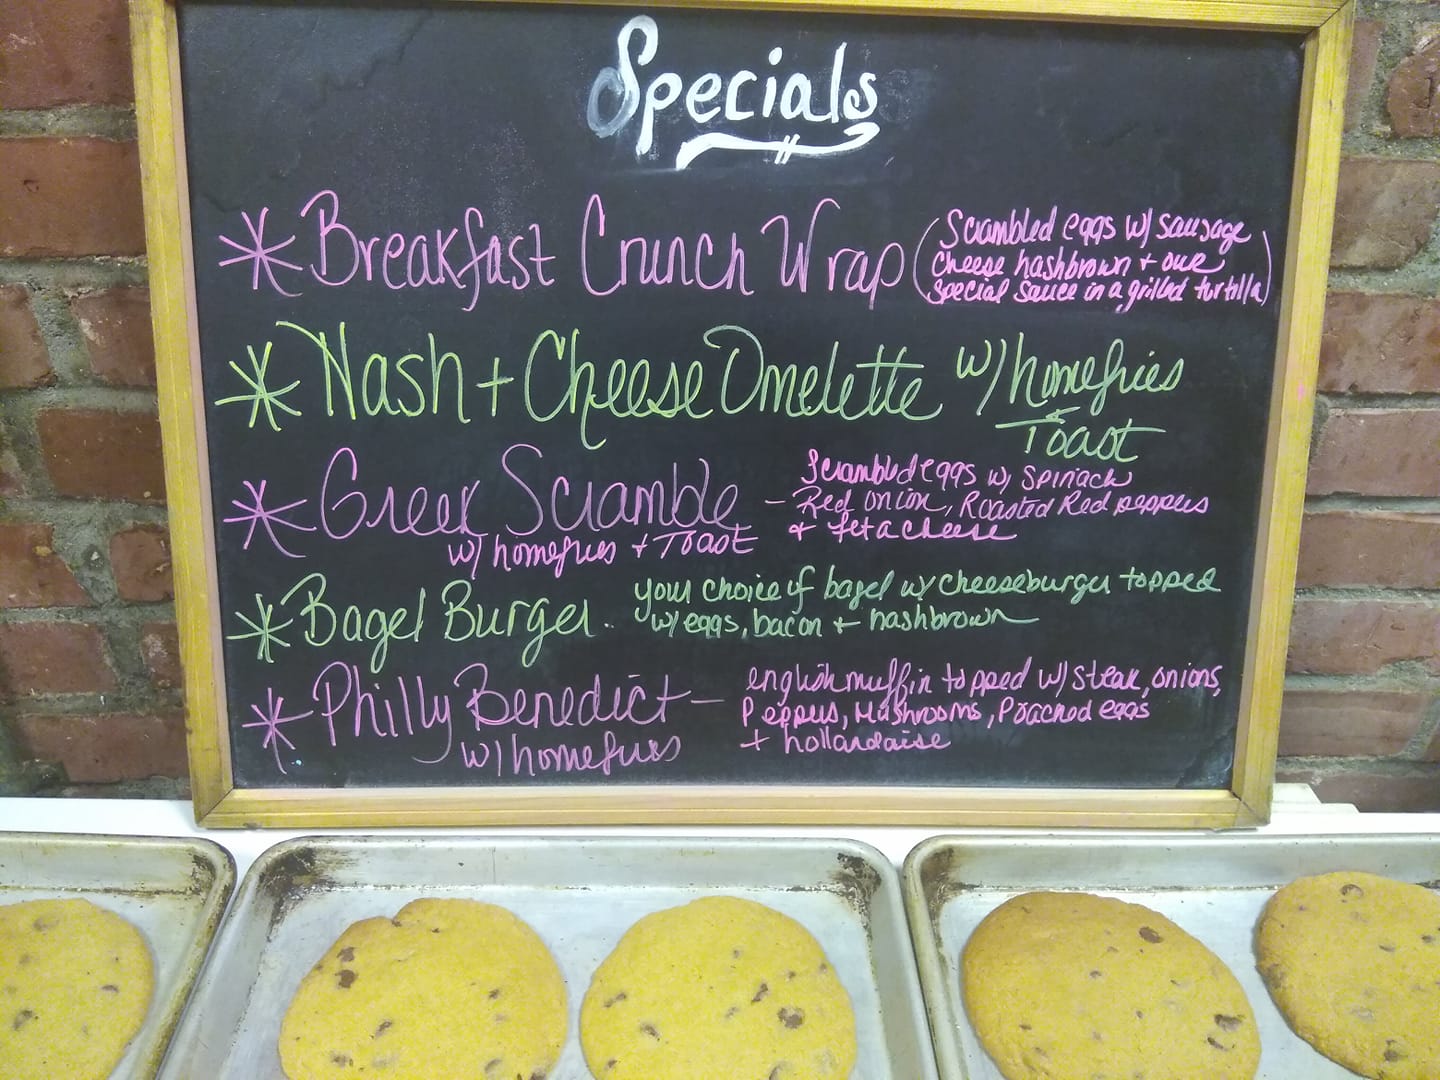 Specials
* Breakfast Crunch Wrap (Scrambled eggs w/ sausage
cheese hashbrown + our
special sauce in a grilled turtilla)
* Hash + Cheese Omelette w/ homefries
+ Toast
* Greek Scramble - Scrambled eggs w/ Spinach
Red onion, Roasted Red peppers
+ feta cheese
w/ homefries + Toast
* Bagel Burger. your choice of bagel w/ cheeseburger topped
w/ eggs, bacon + hashbrown
* Philly Benedict - english muffin topped w/ steak, onions,
Peppers, Mushrooms, Poached eggs
+ hollandaise
w/ homefries